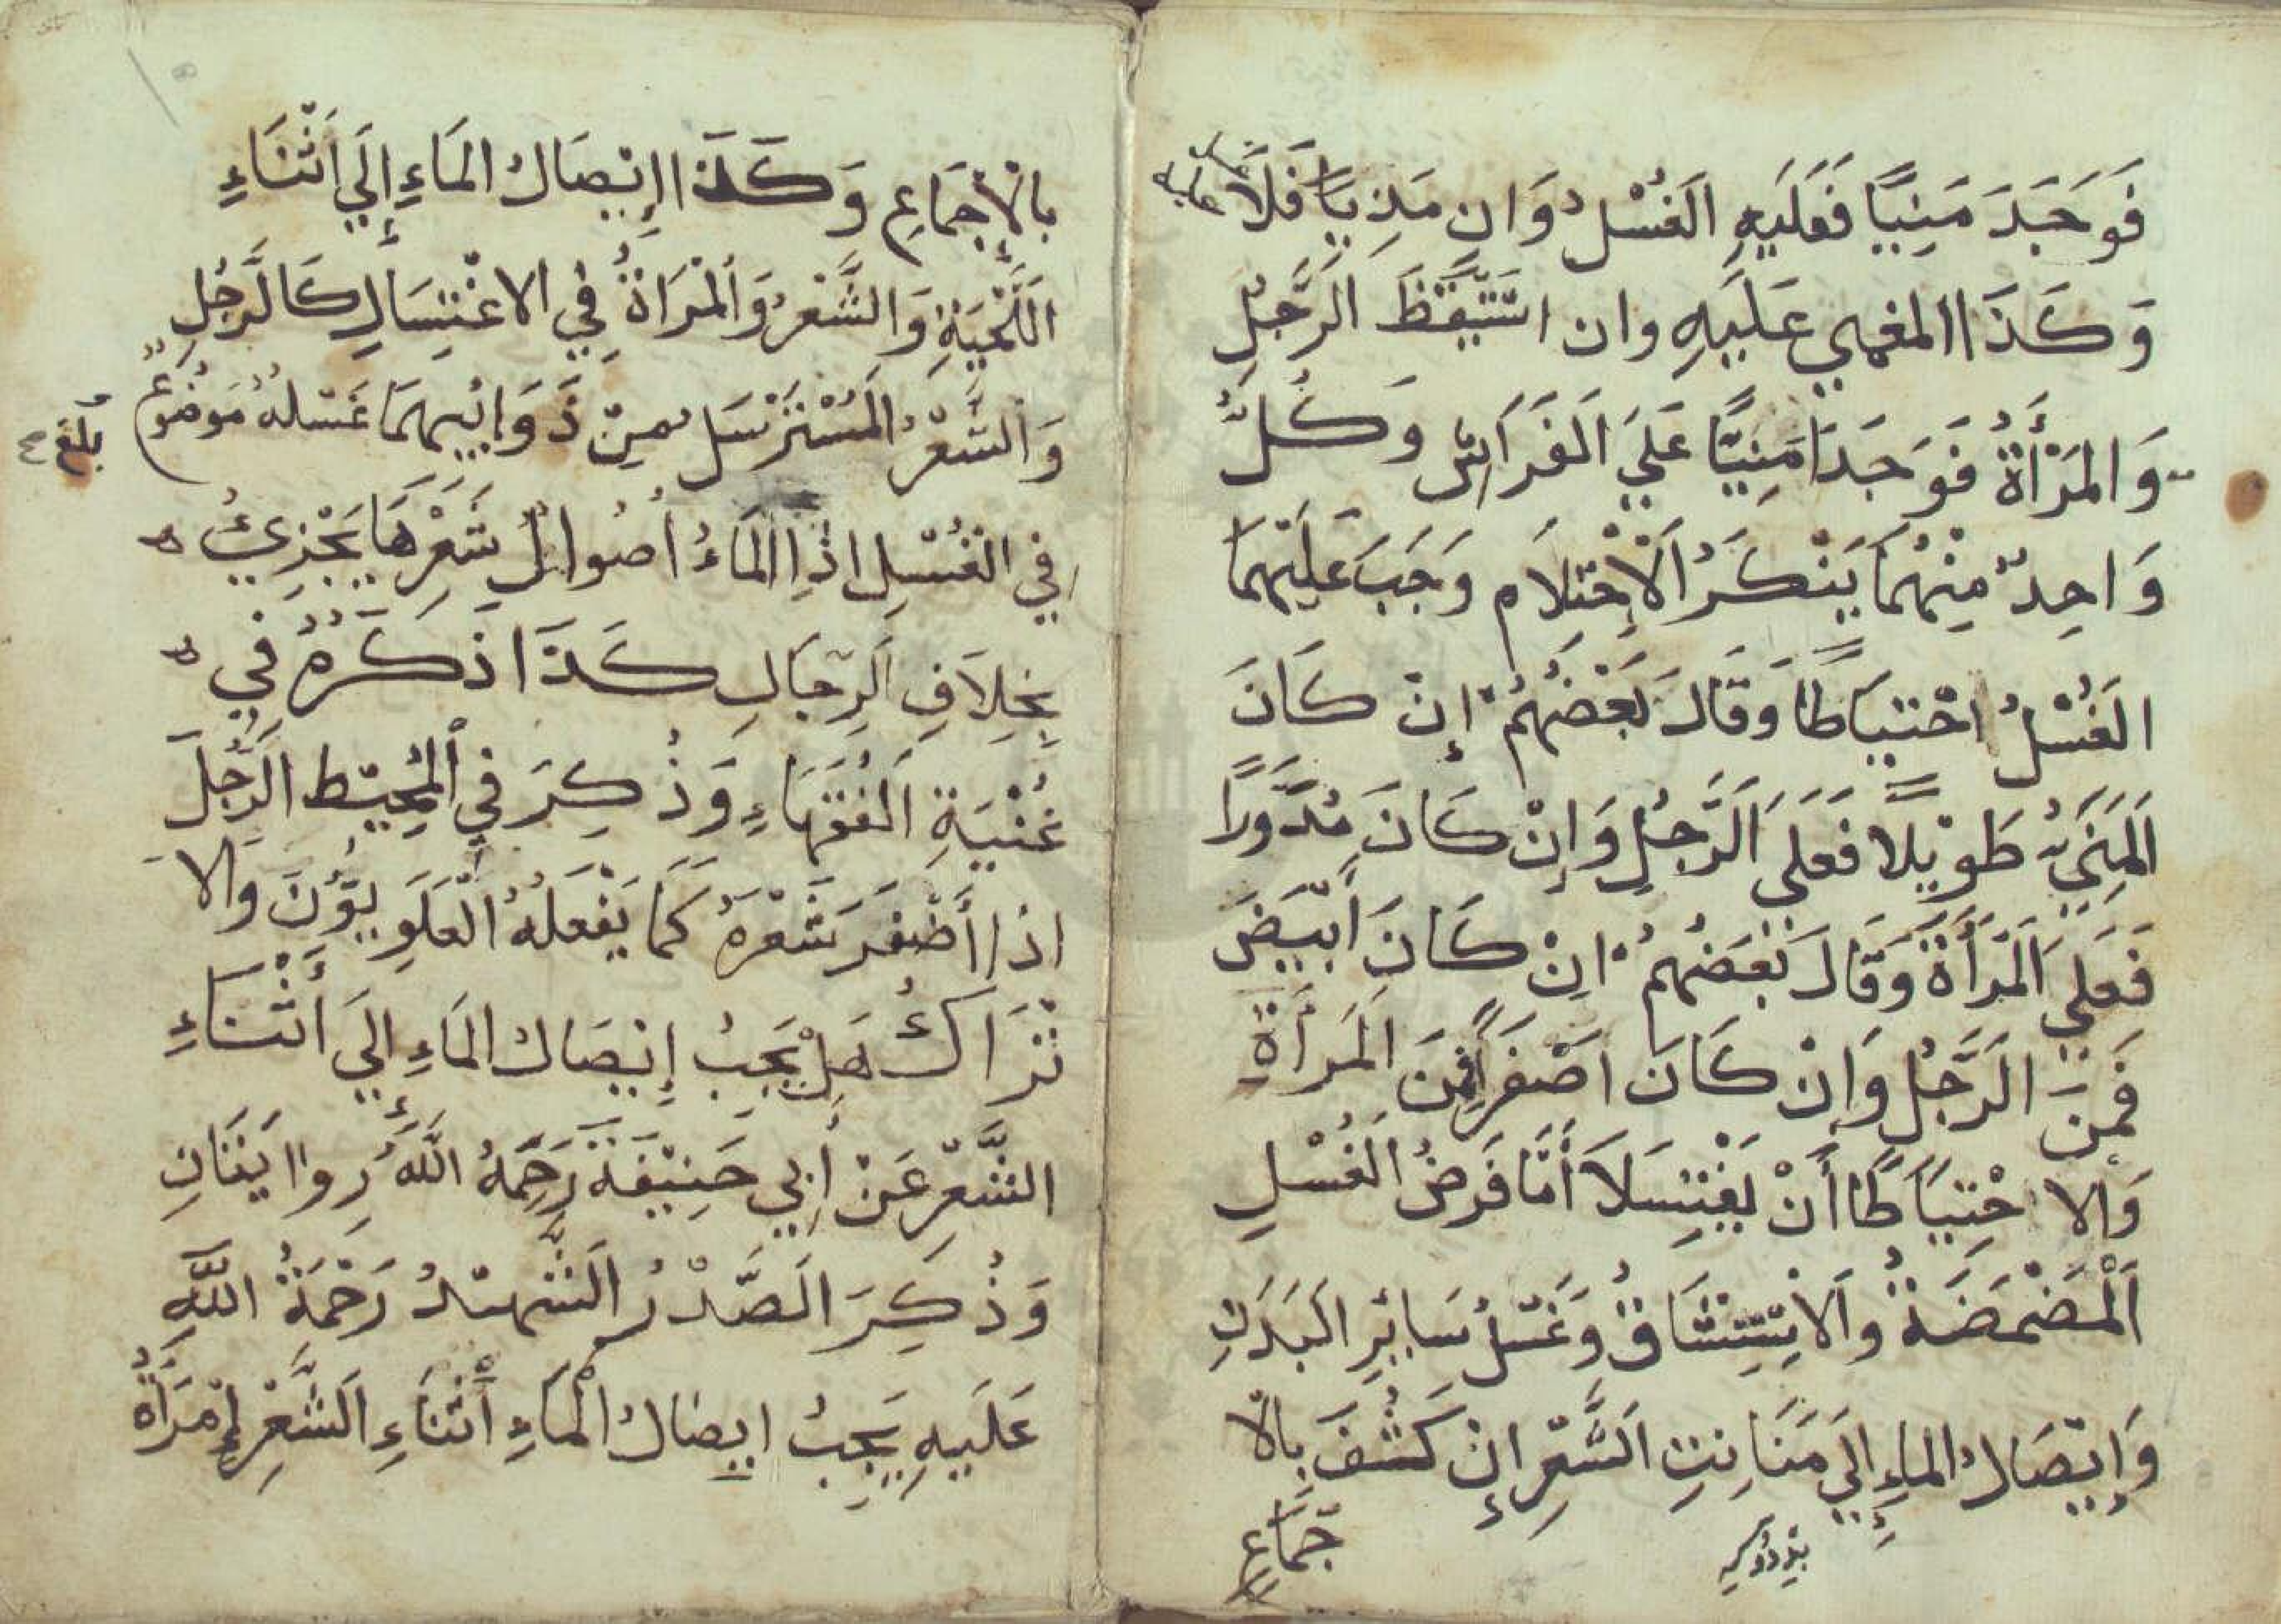 فَوَجَدَ مَنِيًّا فَعَلَيهِ الغُسْلُ وَان مَذِيًا فَلَا
وَكَذَا المغمي عَلَيهِ وان استَيقَظَ الرَّجُلِ
وَالمَرْأَةُ فَوَجَدَا مَنِيًّا عَلَي الفَرَاش وَكُلُّ
وَاحِدٌ مِنْهُمَا يَنْكَرُ الْاِحْتِلَام وَجَبَ عَلَيْهِمَا
الغُسْلُ احْتِيَاطًا وَقَالَ بَعْضُهُمْ إِنْ كَانَ
المَنِيُّ طَوِيْلًا فَعَلَي الرَّجُلِ وَإِنْ كَانَ مُدَّوَرًا
فَعَلَي المَرْأَةَ وَقَالَ بَعْضُهُمْ اِنْ كَانَ أَبْيَضَ
فَمِنَ الرَّجُلِ وَاِنْ كَانَ اصْفَرًا فَمِنَ المَرأَةِ
وَالاحْتِيَاطًا أَنْ يَغْتِسَلَا أَمَّا فَرَضُ الغُسْلِ
اَلْمَضْمَضَةُ وَالاِسْتِنْشَاقُ وَغَسْلُ سَايِرِ البَدَنِ
وَإِيْصَالُ الماءِ إِلَي مَنَابِتِ الشَّعْرِ إِنْ كَشُفَ بِالا
جْمَاعِ
بِالْاِجْمَاعِ وَكَذَا اإِيْصَالُ المَاءِ إِلَي اَثْنَاءِ
اللَّحْيَةِ وَالشَّعْرُ وَالْمَرَاةُ فِي الاغْتِسَالِ كَالرَّجُلِ
وَالشَّعْرُ المُسْتَرْسَل مِنْ ذَوَايِبِهِمَا غَسْلهُ مَوضُوعٌ
بلغ
فِي الغُسْلِ اذَا المَاءُ أُصُوْلُ شَعْرِهَا يَجْزِيُ
بِخِلَافِ الرِّجَالِ كَذَا ذَكَرَهُ فِي
غُنْيَةِ الفُقَهَاءِ وَذُكِرَ فِي الْمُحِيْط الرَّجُلَ
اذا أَضْفَرَ شَعْرَهُ كَمَا يَفْعَلهُ الْعَلَوِيُّوْنَ وَالا
تْرَاكُ هَلْ يَجِبُ إِيْصَالُ المَاءِ اِلَي أَثْنَاءِ
الشَّعْرِ عَنْ أَبِي حَنِيْفَةَ رَحِمَهُ اللَّهُ رِوايَتَانِ
وَذُكِرَ الصَّدْرُ الشَّهِيْدُ رَحْمَةُ اللَّهِ
عَلَيهِ يَجِبُ ايِصَالُ الْمَاءِ أَثْنَاءِ الشَّعْرِ